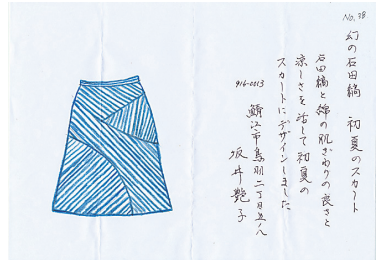 No. 38
幻の石田縞 初夏のスカート
石田縞と綿の肌ざわりの良さと
涼しさを活して初夏の
スカートにデザインしました
916-0013
鯖江市鳥羽二丁目五ノ八
坂井艶子